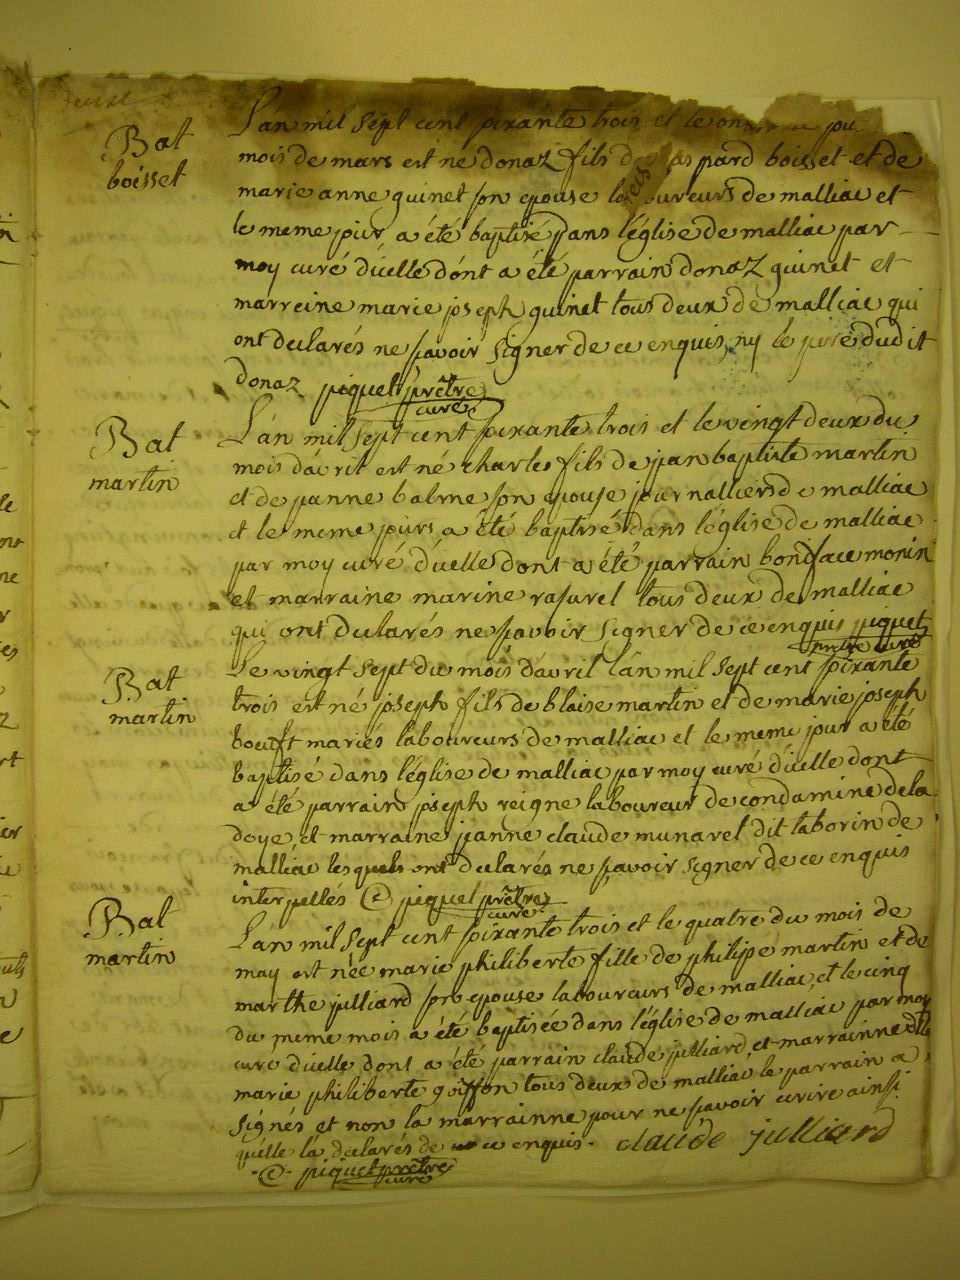 Bat
boisset
L'an mil sept cent soixante trois et le
mois de mars est né donaz fils de pard boisset et de
marie anne guinet son epouse laboureurs de malliac et
le meme jour a été baptisé dans l'église de malliac par
moy curé d'icelle dónt a été parrain donaz guinet et
marreine marie joseph guinet tous deux de malliac qui
ont déclarés ne sçavoir signer de ce enquis, ny le pere dudit
donaz piquet prêtre
curé
Bat
martin
L'án mil sept cent soixante trois et le vingt deux du
mois d'avril est né charles fils de jean baptiste martin
et de jeanne balme son epouse journalliers de malliac
et le meme jours a été baptisé dans l'église de malliac
par moy curé d'icelle dont a été parrain boniface monin
et marraine marine rasurel tous deux de malliac
qui ont declarés ne sçavoir signer de ce enquis piquet
prêtre curé
Bat
martin
Le vingt sept du mois d'avril l'an mil sept cent soixante
trois est né joseph fils de blaise martin et de marie joseph
mariés laboureurs de malliac et le meme jour a été
baptisé dans l'église de malliac par moy curé d'icelle dont
a été parrain joseph reigne laboureur de condamine de la
doye, et marraine jeanne claude munarel dit laborin de
malliac lesquels ont declarés ne sçavoir signer de ce enquis
interpellés @ piquet prêtre
curé
Bat
martin
L'án mil sept cent soixante trois et le quatre du mois de
may est née marie philiberte fille de philipe martin et de
marthe julliard son epouse laboureurs de malliac, et le cinq
du meme mois a été baptisée dans l'église de malliac par moy
curé d'icelle dont a été parrain claude julliard, et marrainne
marie philiberte goiffon tous deux de malliac, le parrain a
signés et non la marrainne pour ne sçavoir ecrire ainsi
quélle la declarés de ce enquis. claude julliard
@ piquet prêtre
curé